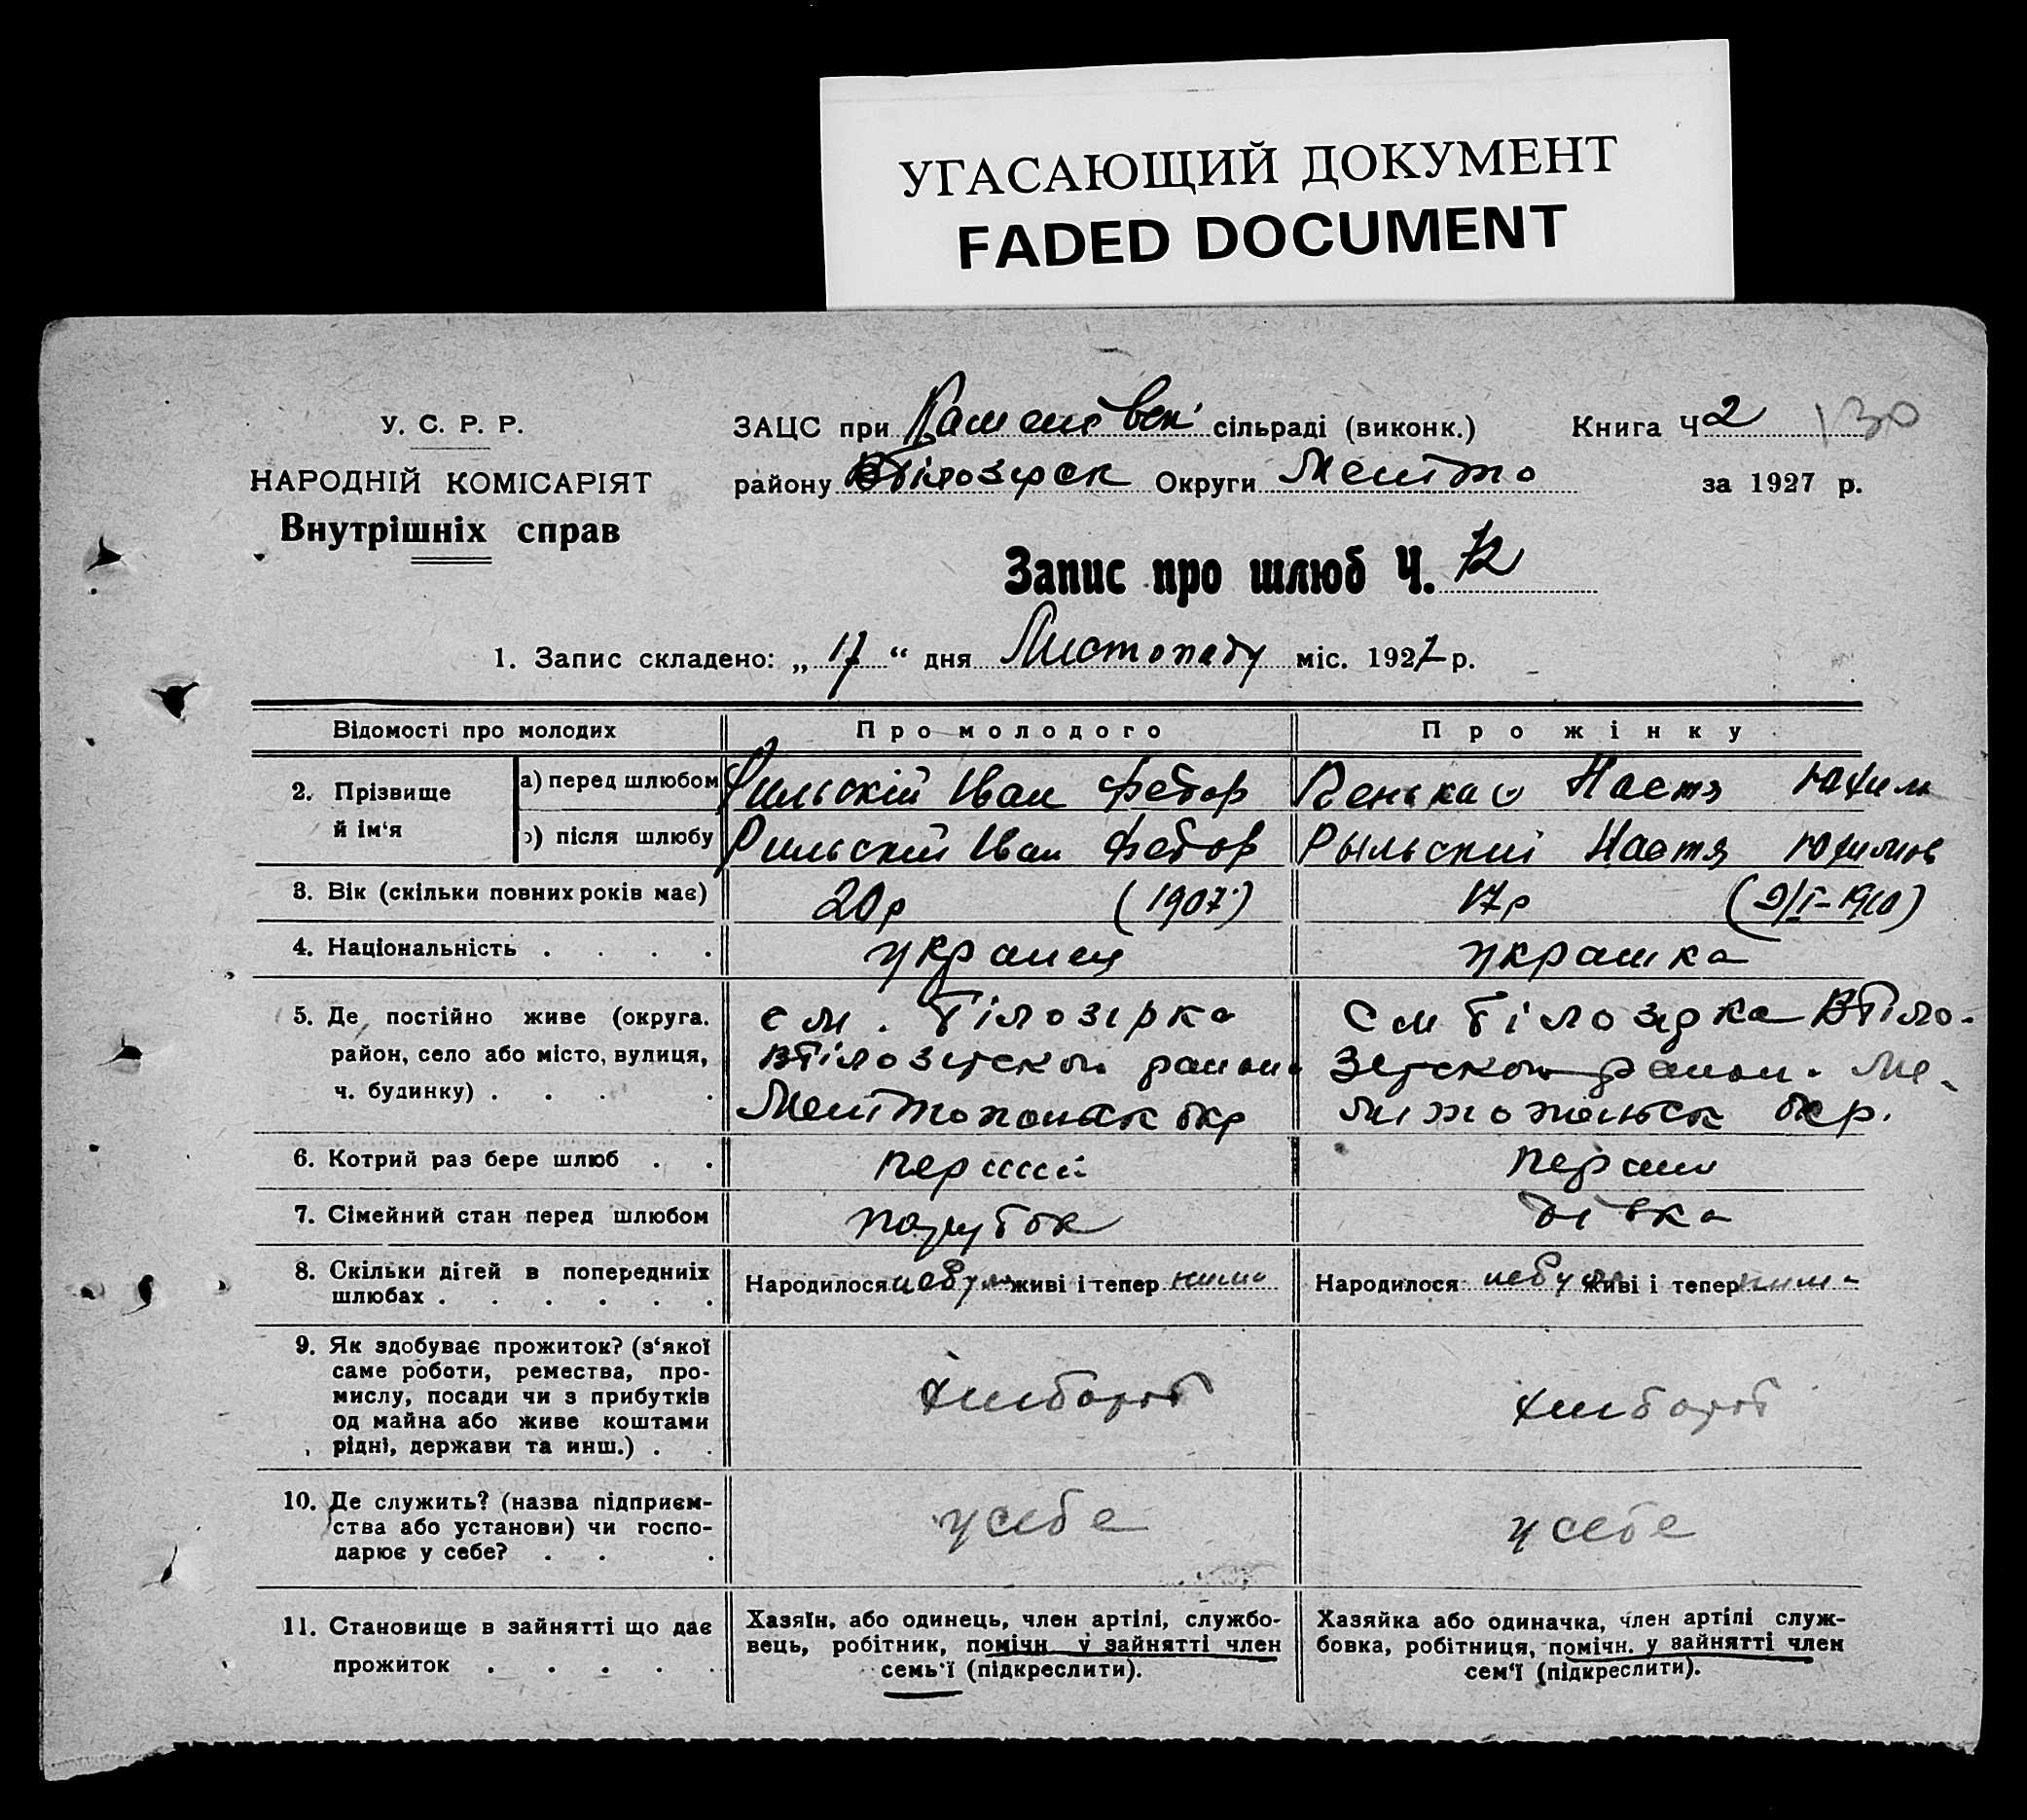 УГАСАЮЩИЙ ДОКУМЕНТ
FADED DOCUMENT
У. С. Р. Р.
НАРОДНІЙ КОМІСАРІЯТ
Внутрішніх справ
ЗАЦС при сільраді (виконк.)
Книга Ч 2 130
району Округи
за 1927 р.
Запис про шлюб Ч. 72
1. Запис складено: „ 17 “ дня Листопаду міс. 1927 р.
Відомості про молодих Про молодого Про жінку
2. Прізвище й ім‘я
а) перед шлюбом Рильскій Іван Федор Настя Юхим
б) після шлюбу Рильский Іван Федор Рыльский Настя Юхимов
3. Вік (скільки повних років має) 20 р (1907) 17 р (9/I-1910)
4. Національність . . . . украинец украинка
5. Де постійно живе (округа.
район, село або місто, вулиця,
ч. будинку) . . . .
см. Білозірка
район
окр
см Білозірка
район. Ме-
окр.
6. Котрий раз бере шлюб . . перший перший
7. Сімейний стан перед шлюбом парубок дівка
8. Скільки дітей в попередниіх
шлюбах . . . . . .
Народилося небуло живі і тепер нима
Народилося небуло живі і тепер нима
9. Як здобуває прожиток? (з‘якої
саме роботи, ремества, про-
мислу, посади чи з прибутків
од майна або живе коштами
рідні, держави та инш.) . .
хлибороб хлибороб
10. Де служить? (назва підприєм-
ства або установи) чи госпо-
дарює у себе? . . .
у себе у себе
11. Становище в зайнятті що дає
прожиток . . . . .
Хазяїн, або одинець, член артілі, службо-
вець, робітник, помічн у зайнятті член
семь‘ї (підкреслити).
Хазяйка або одиначка, член артілі служ-
бовка, робітниця, помічн. у зайнятті член
сем‘ї (підкреслити).